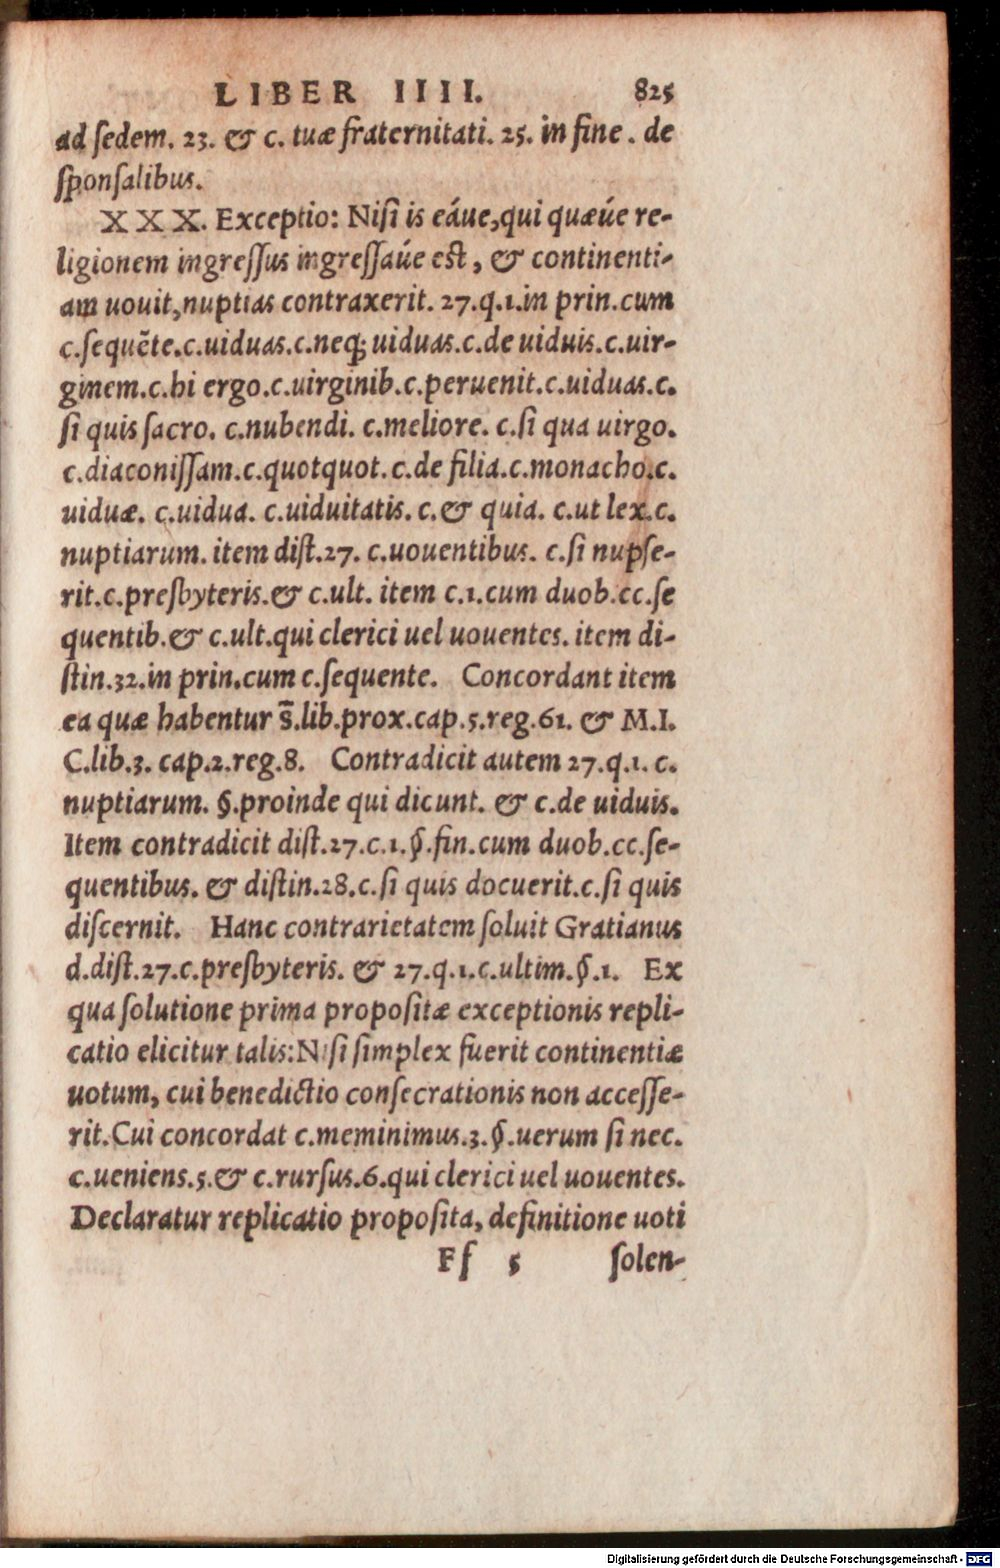 LIBER IIII. 825
ad ſedem. 23. & c. tuæ fraternitati. 25. in fine. de
ſponſalibus.
XXX. Exceptio: Niſi is eáue, qui quæúe re-
ligionem ingreſſus ingreſſaúe eſt, & continenti-
am uouit, nuptias contraxerit. 27.q.1.in prin.cum
c.ſequẽte.c.uiduas.c.neq; uiduas.c.de uiduis.c.uir-
ginem.c.hi ergo.c.uirginib.c.peruenit.c.uiduas.c.
ſi quis ſacro. c.nubendi. c.meliore. c.ſi qua uirgo.
c.diaconiſſam.c.quotquot.c.de filia.c.monacho.c.
uiduæ. c.uidua. c.uiduitatis. c.& quia. c.ut lex.c.
nuptiarum. item diſt.27. c.uouentibus. c.ſi nupſe-
rit.c.preſbyteris.& c.ult. item c.1.cum duob.cc.ſe
quentib.& c.ult.qui clerici uel uouentes. item di-
ſtin.32.in prin.cum c.ſequente. Concordant item
ea quæ habentur s̄.lib.prox.cap.5.reg.61. & M.I.
C.lib.3. cap.2.reg.8. Contradicit autem 27.q.1. c.
nuptiarum. §.proinde qui dicunt. & c.de uiduis.
Item contradicit diſt.27.c.1.§.fin.cum duob.cc.ſe-
quentibus. & diſtin.28.c.ſi quis docuerit.c.ſi quis
diſcernit. Hanc contrarietatem ſoluit Gratianus
d.diſt.27.c.preſbyteris. & 27.q.1.c.ultim.§.1. Ex
qua ſolutione prima propoſitæ exceptionis repli-
catio elicitur talis: Niſi ſimplex fuerit continentiæ
uotum, cui benedictio conſecrationis non acceſſe-
rit. Cui concordat c.meminimus.3.§.uerum ſi nec.
c.ueniens.5.& c.rurſus.6.qui clerici uel uouentes.
Declaratur replicatio propoſita, definitione uoti
Ff 5 ſolen-
Digitalisierung gefördert durch die Deutsche Forschungsgemeinschaft - DFG